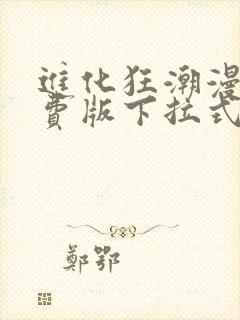 進化狂潮漫
費版下拉式
鄭鄂